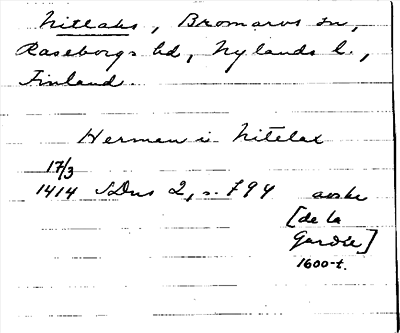 Nitlaks, Bromarvs sn,
Raseborgs hd, Nylands l.,
Finland.
Herman i Nitelax
17/3
1414 SDns 2, s. 794 avskr
[de la
Gardie]
1600-t.